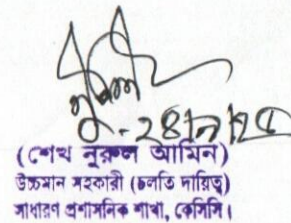 ২৪/৭/২৫
(শেখ নুরুল আমিন)
উচ্চমান সহকারী (চলতি দায়িত্ব)
সাধারণ প্রশাসনিক শাখা, কেসিসি।